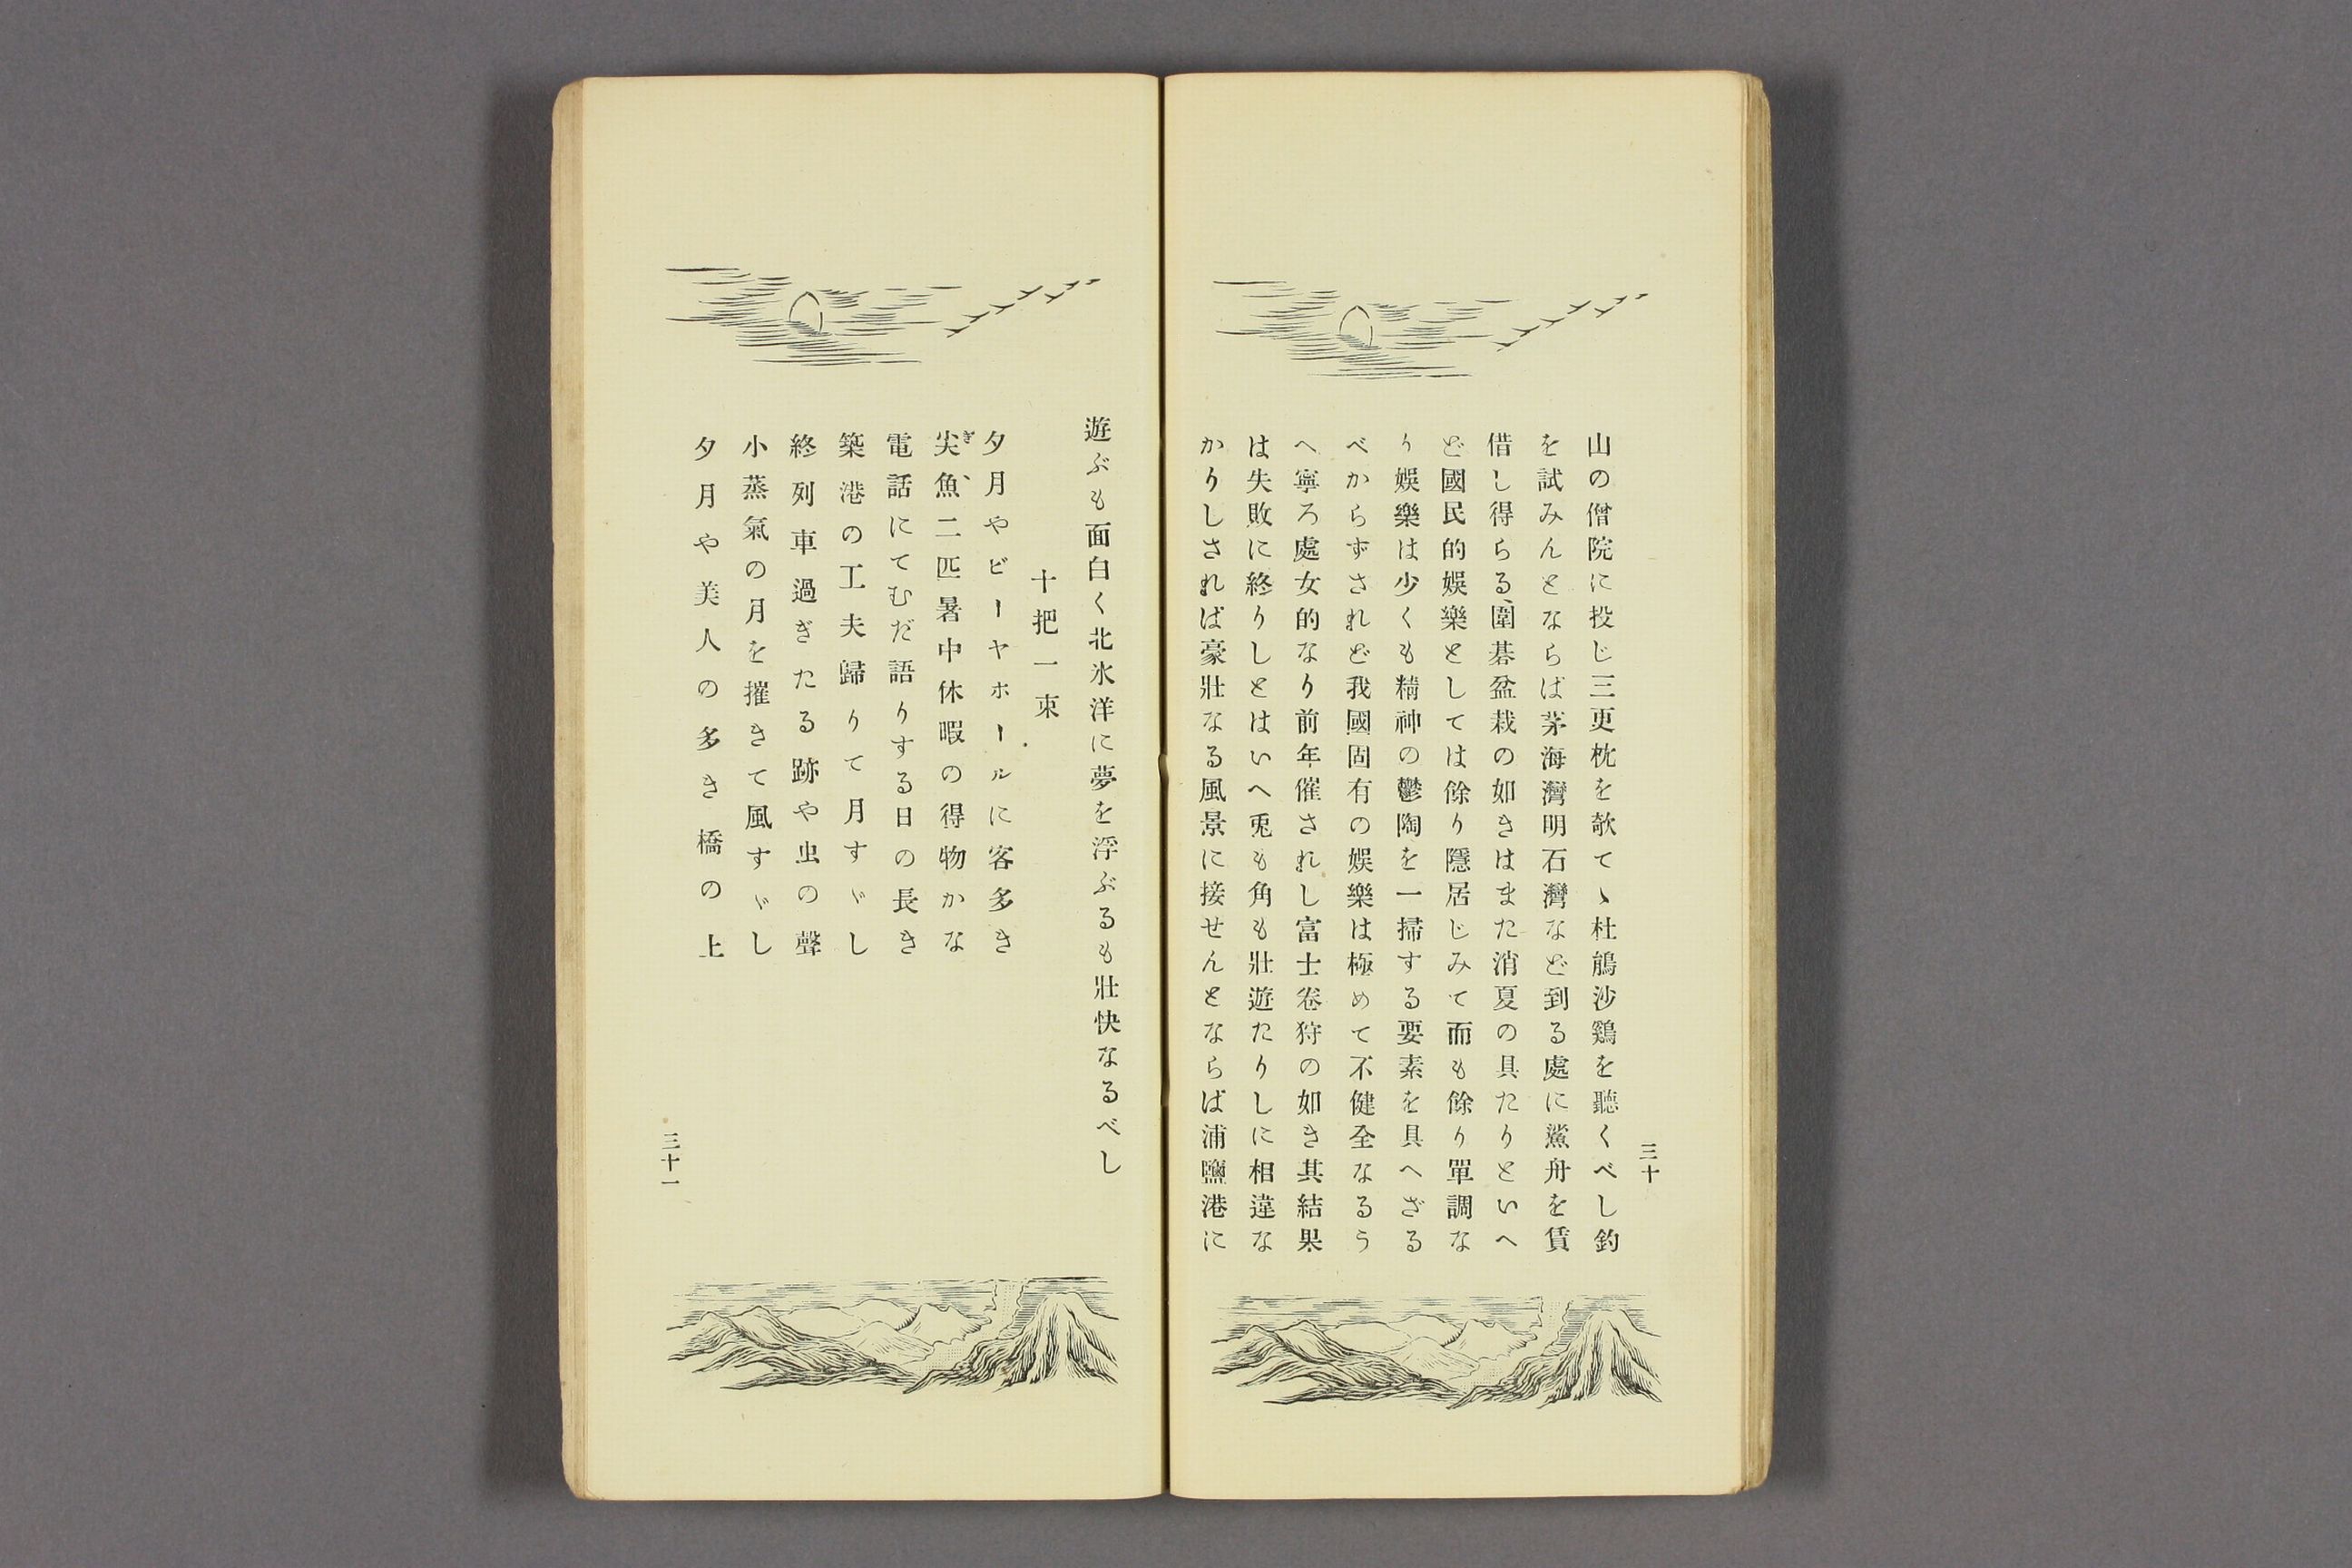 山の僧院に投じ三更枕を欹てゝ杜鵑沙鷄を聽くべし釣
を試みんとならば茅海灣明石灣など到る處に鯊舟を賃
借し得らる、圍碁盆栽の如きはまた消夏の具たりといへ
ど國民的娯樂としては餘り隱居じみて而も餘り單調な
り娯樂は少くも精神の鬱陶を一掃する要素を具へざる
べからずされど我國固有の娯樂は極めて不健全なるう
へ寧ろ處女的なり前年催されし富士卷狩の如き其結果
は失敗に終りしとはいへ兎も角も壯遊たりしに相違な
かりしされば豪壯なる風景に接せんとならば浦鹽港に
三十
遊ぶも面白く北氷洋に夢を浮ぶるも壯快なるべし
十把一束
夕月やビーヤホールに客多き
尖魚二匹暑中休暇の得物かな
電話にてむだ語りする日の長き
築港の工夫歸りて月すゞし
終列車過ぎたる跡や虫の聲
小蒸氣の月を摧きて風すゞし
夕月や美人の多き橋の上
三十一